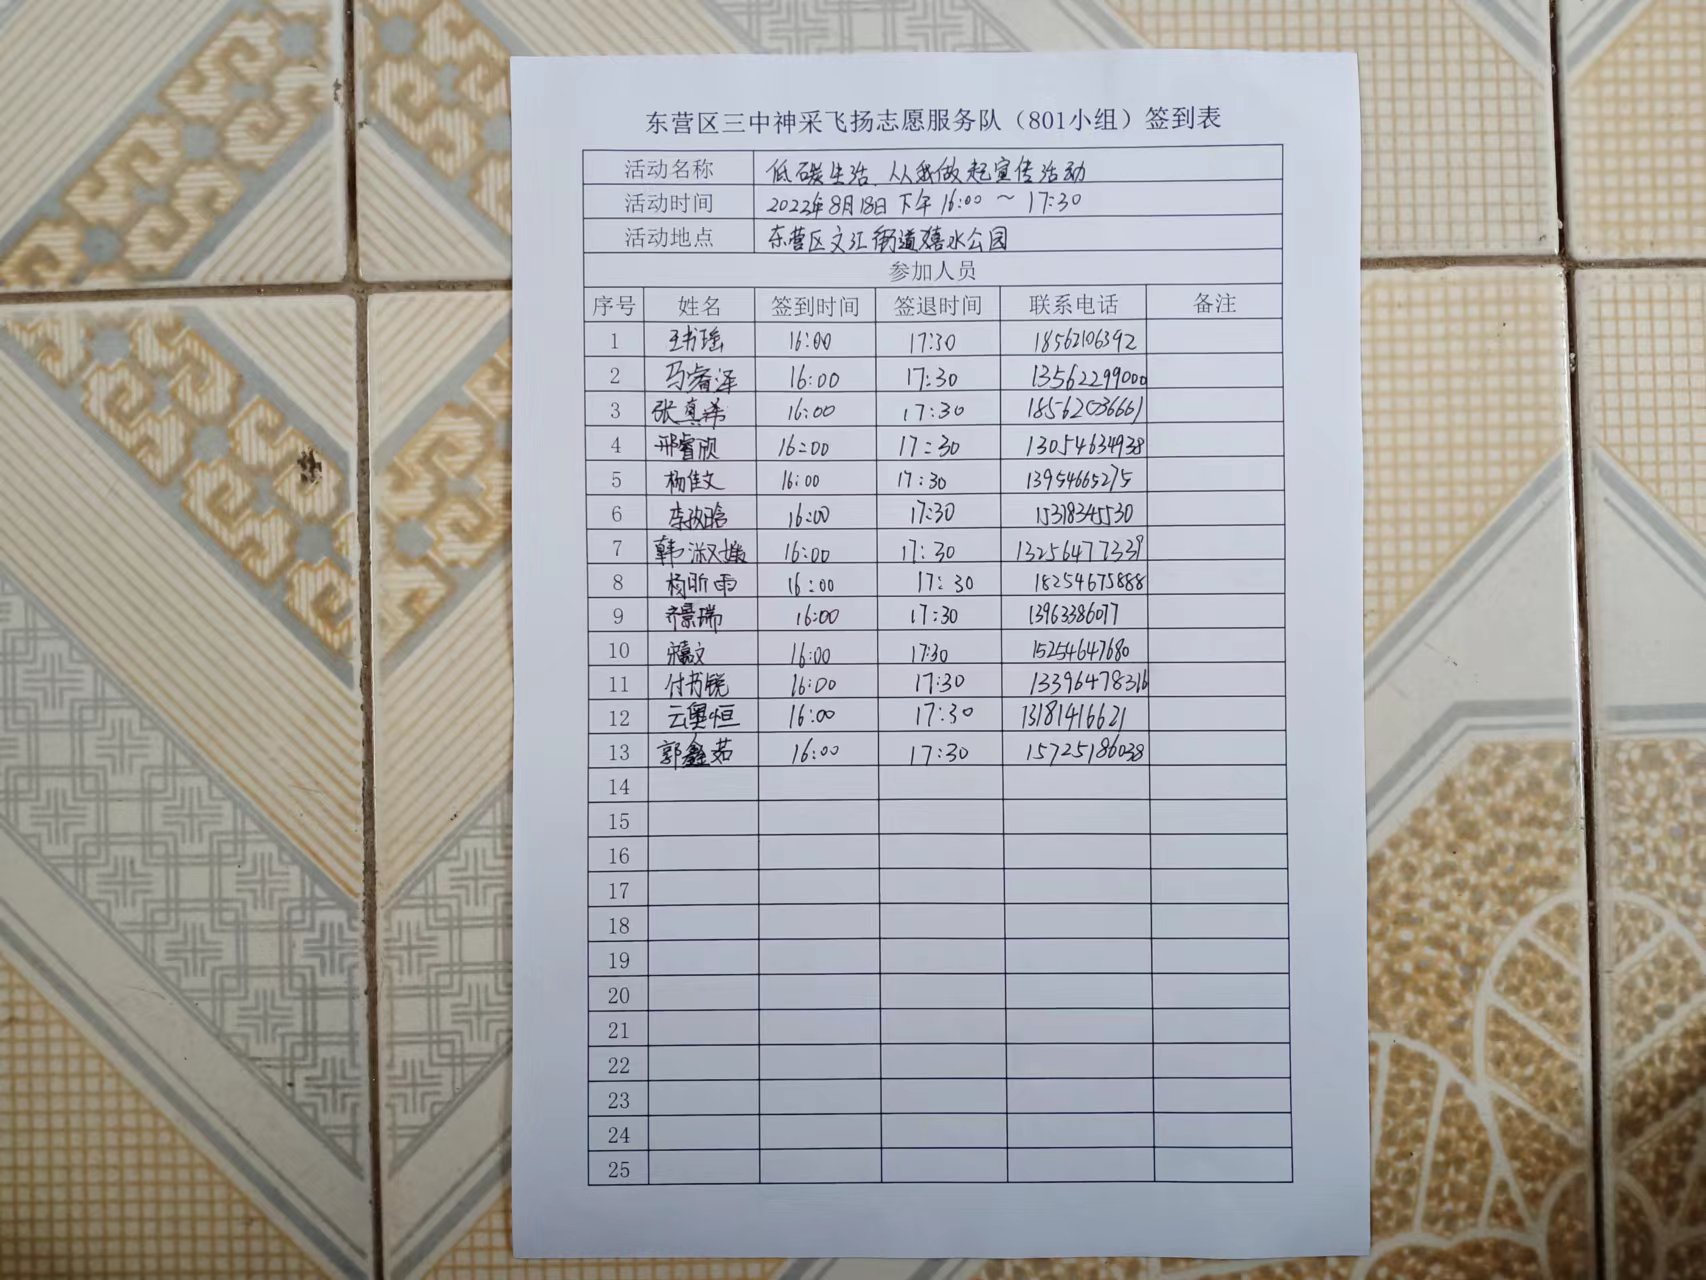 东营区三中神采飞扬志愿服务队（801小组）签到表
活动名称 低碳生活、从我做起宣传活动
活动时间 2023年8月18日下午16:00～17:30
活动地点 东营区文汇街道嬉水公园
参加人员
序号 姓名 签到时间 签退时间 联系电话 备注
1 王书瑶 16:00 17:30 18562106392
2 马睿泽 16:00 17:30 13562299000
3 张真希 16:00 17:30 18562036661
4 邢睿颀 16:00 17:30 13054634938
5 杨佳文 16:00 17:30 13954665275
6 16:00 17:30 15318345530
7 韩淑媛 16:00 17:30 13256477339
8 杨昕雨 16:00 17:30 18254675888
9 齐景瑞 16:00 17:30 13963386077
10 宋嘉文 16:00 17:30 15254647680
11 付芮锐 16:00 17:30 13396478316
12 云奥恒 16:00 17:30 13181416621
13 郭鑫茹 16:00 17:30 15725186038
14
15
16
17
18
19
20
21
22
23
24
25